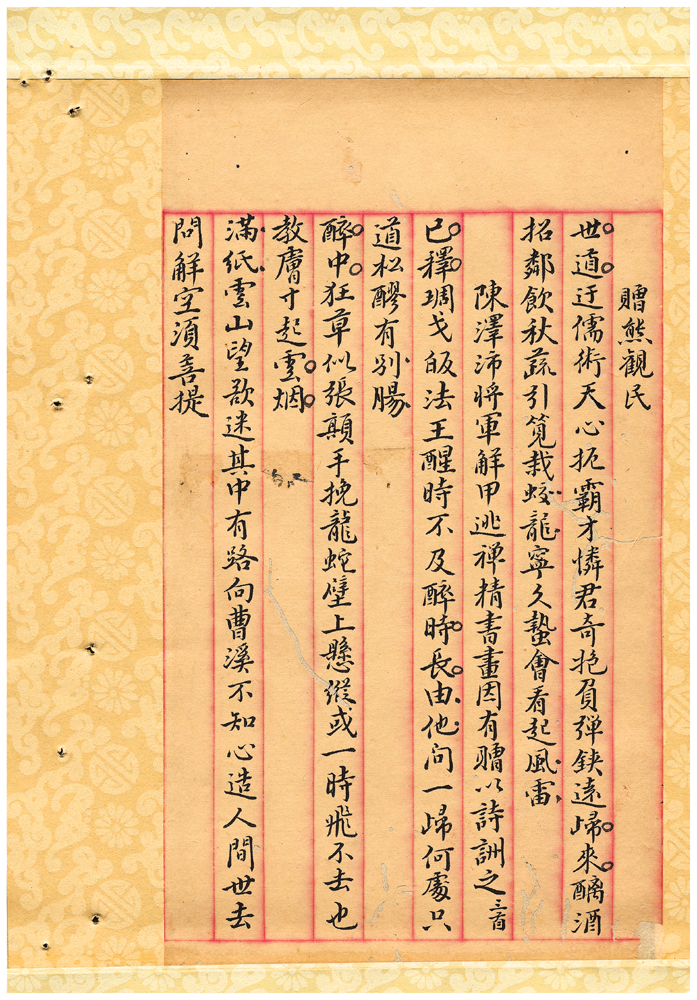 贈熊觀民
世道迂儒術天心扼霸才憐君奇抱負彈鋏遠歸來釃酒
招鄰飲秋蔬引筧栽蛟龍寧久蟄會看起風雷
陳澤沛將軍解甲逃禅精書畫因有贈以詩詶之三首
已釋琱戈皈法王醒時不及醉時長由他問一歸何處只
道松醪有別腸
醉中狂草似張顛手挽龍蛇壁上懸縱或一時飛不去也
教膚寸起雲烟
滿紙雲山望欲迷其中有路向曹溪不知心造人間世去
問解空須菩提